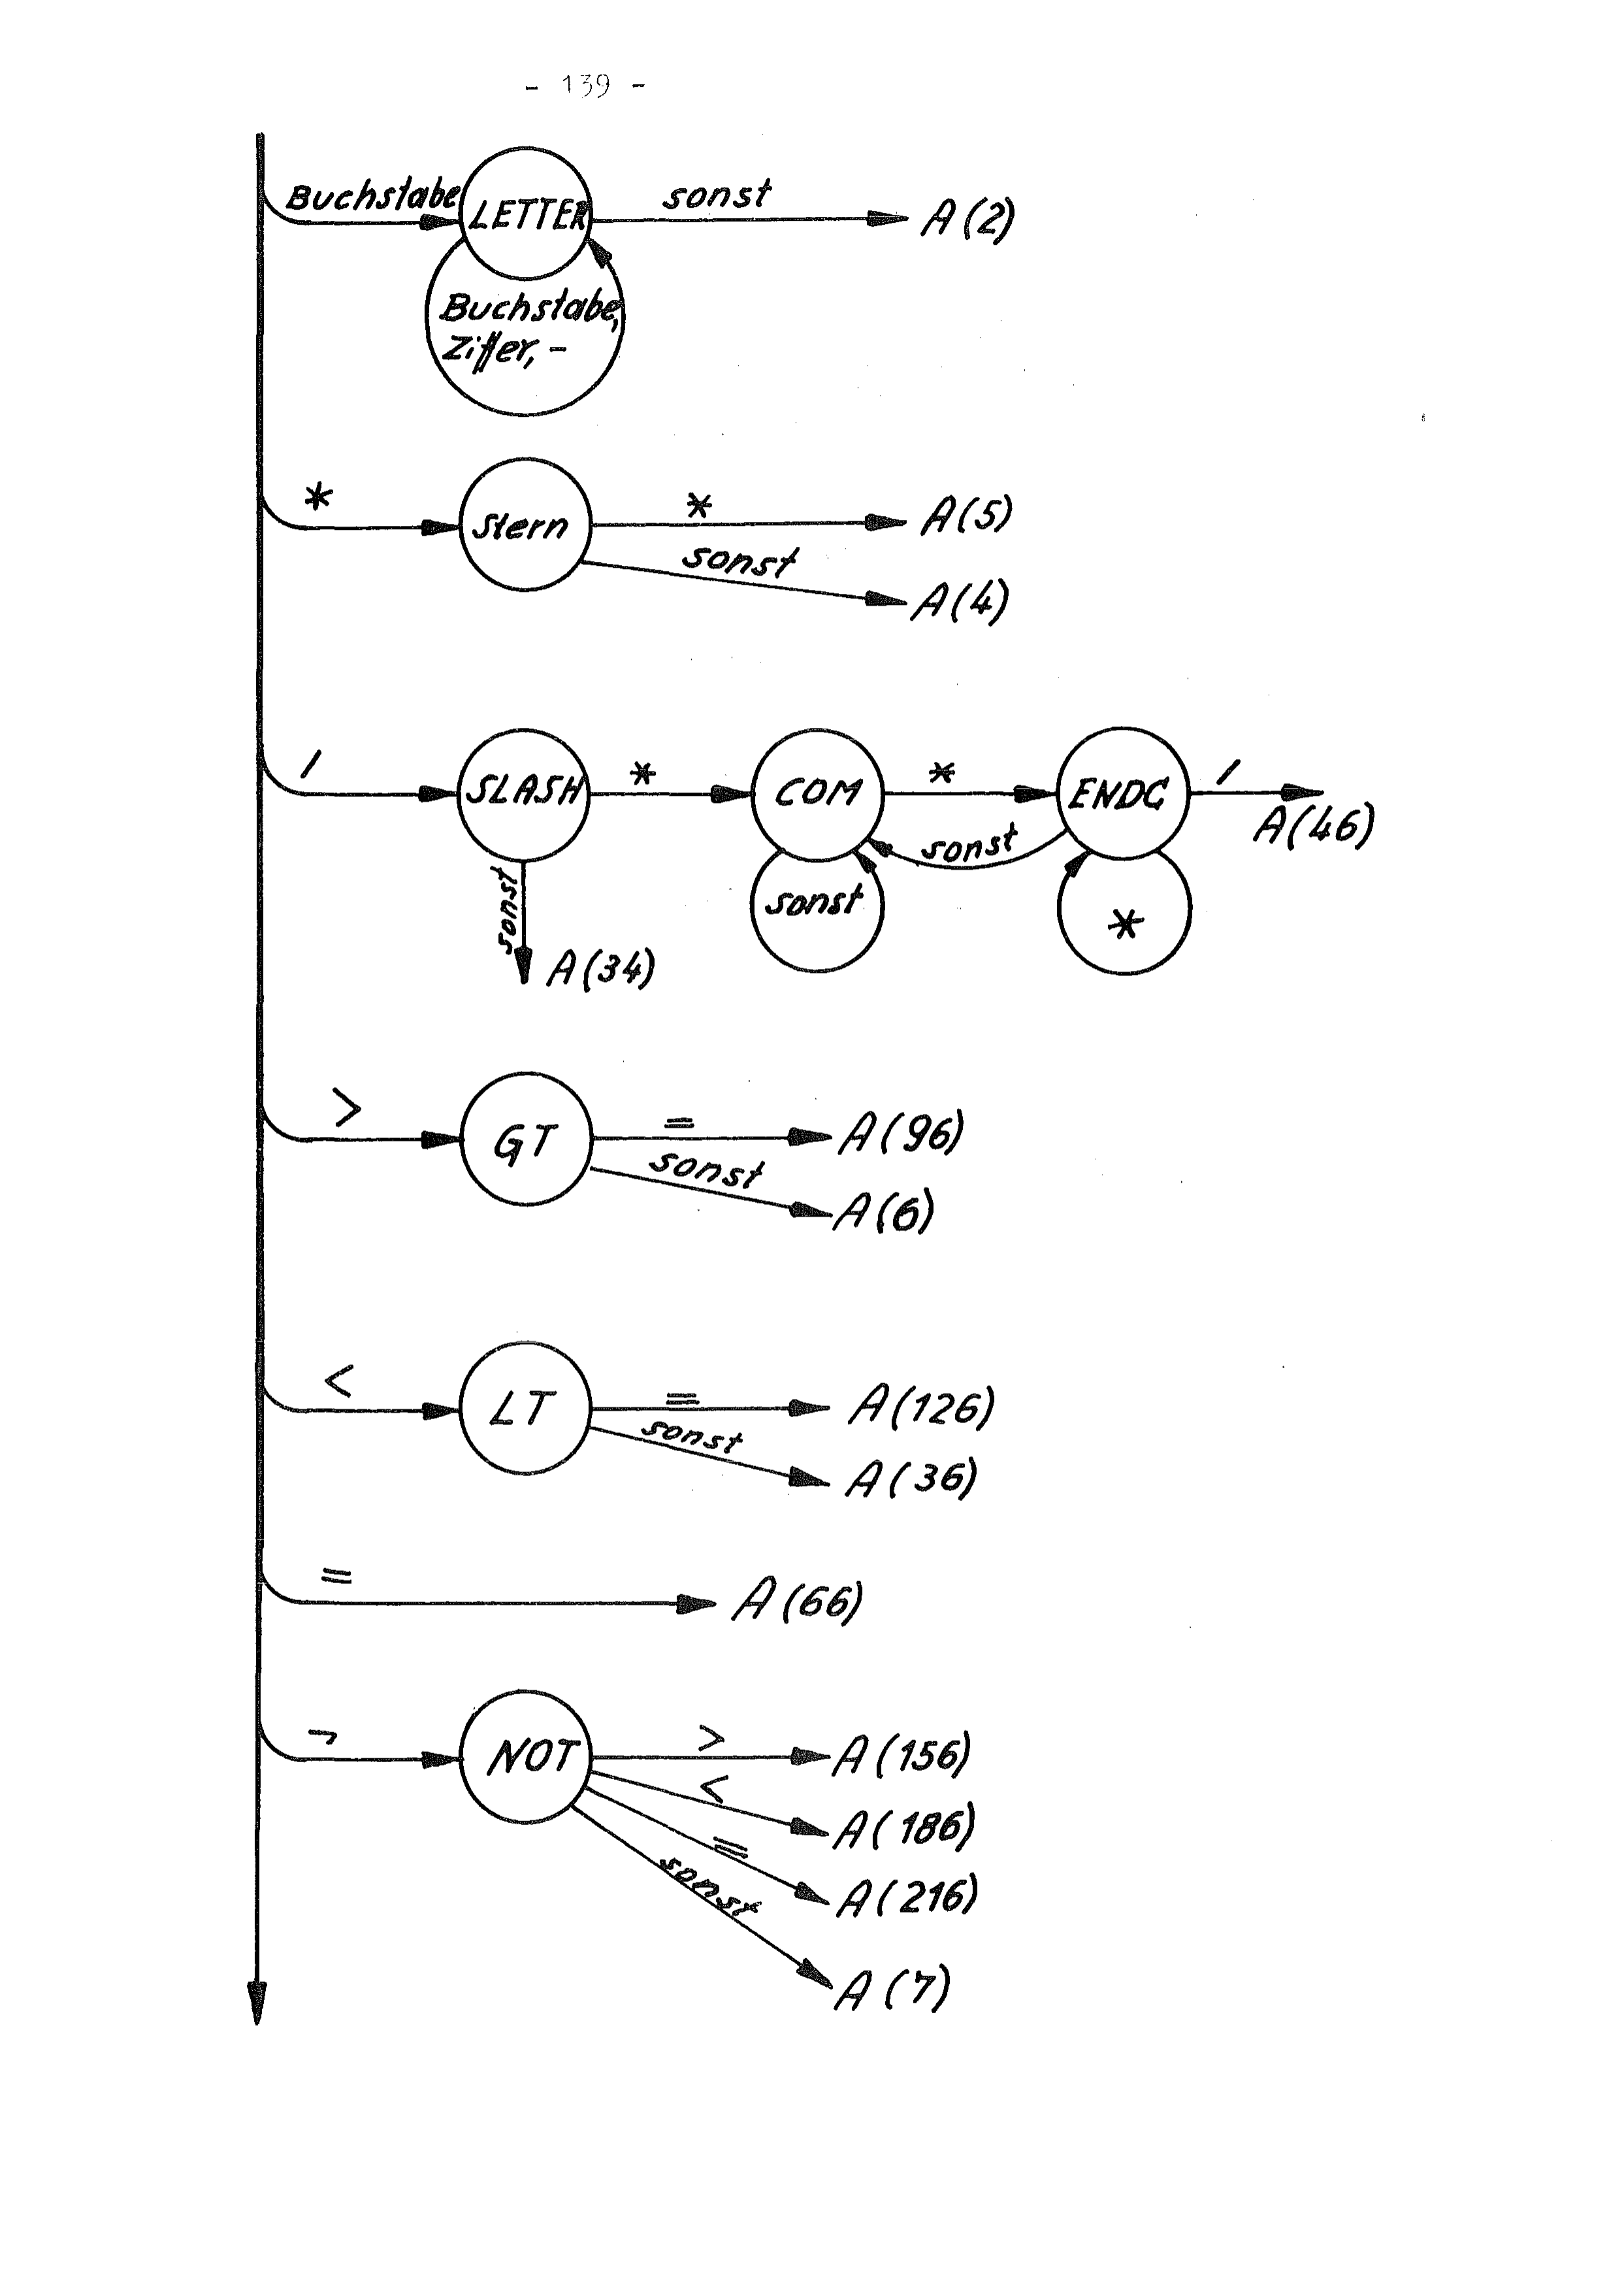 - 139 -
Buchstabe LETTER sonst A(2)
Buchstabe,
Ziffer, -
* Stern * A(5)
sonst A(4)
/ SLASH * COM * ENDC / A(46)
sonst
sonst *
sonst A(34)
> GT = A(96)
sonst A(6)
< LT = A(126)
sonst A(36)
= A(66)
¬ NOT > A(156)
< A(186)
= A(216)
sonst A(7)